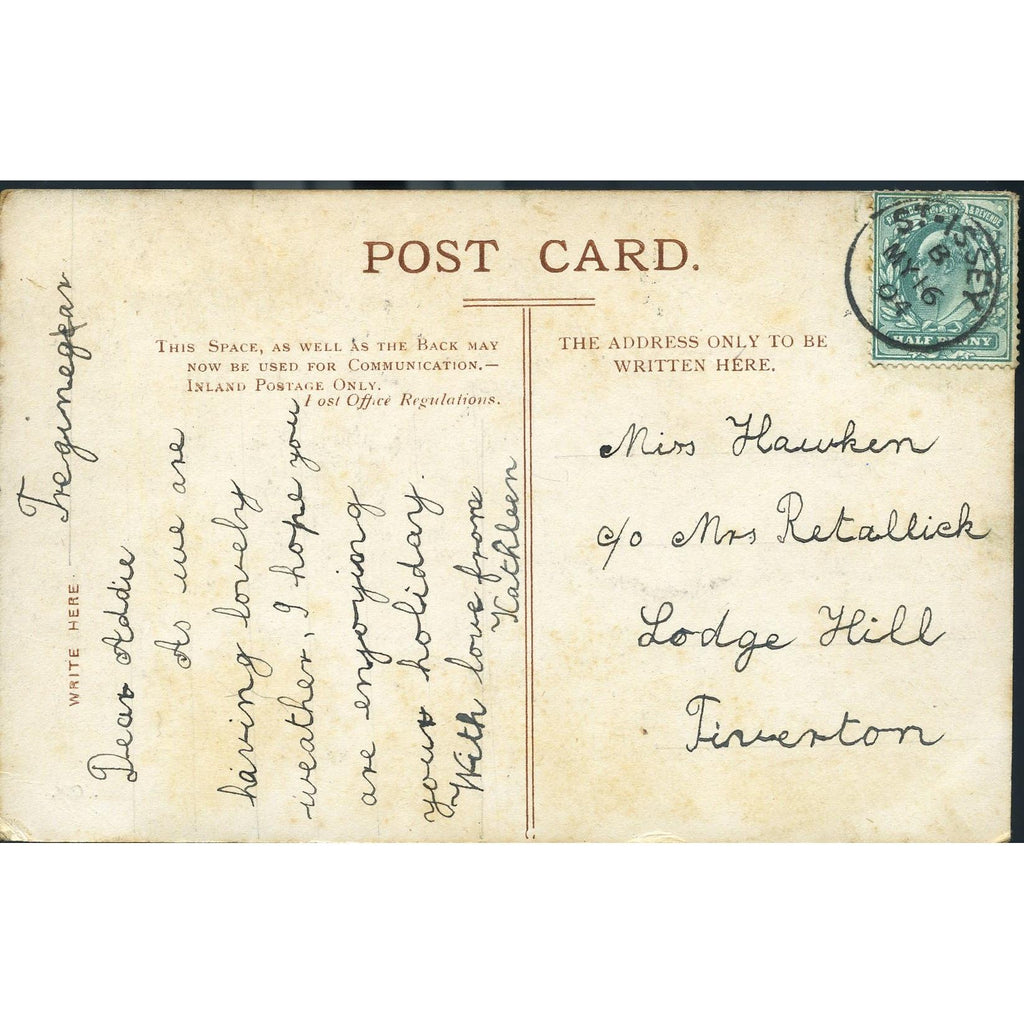 POST CARD.
THIS SPACE, AS WELL AS THE BACK MAY
NOW BE USED FOR COMMUNICATION.—
INLAND POSTAGE ONLY.
Post Office Regulations.
THE ADDRESS ONLY TO BE
WRITTEN HERE.
WRITE HERE.
Treginegar
Dear Addie
As we are
having lovely
weather, I hope you
are enjoying
your holiday.
With love from
Kathleen
Miss Hawken
c/o Mrs Retallick
Lodge Hill
Tiverton
ST. ISSEY
B
MY 16
04
& REVENUE
HALF PENNY